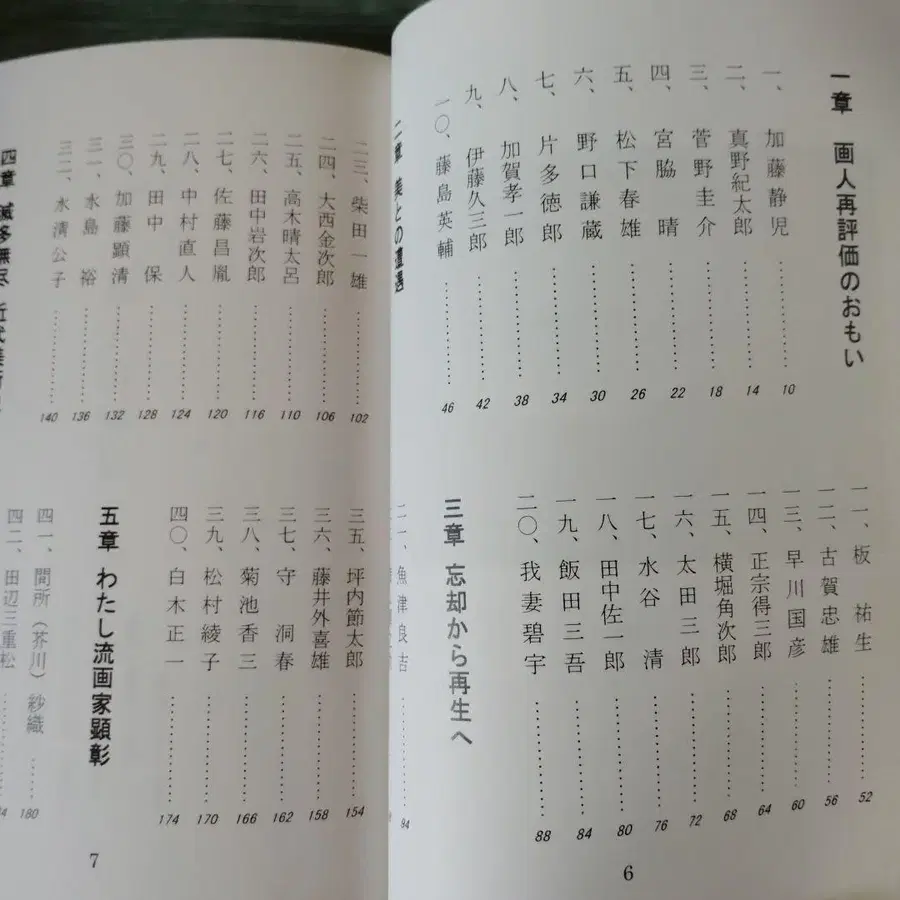 一章 画人再評価のおもい
一、加藤静児 ………… 10
二、真野紀太郎 ………… 14
三、菅野圭介 ………… 18
四、宮脇 晴 ………… 22
五、松下春雄 ………… 26
六、野口謙蔵 ………… 30
七、片多徳郎 ………… 34
八、加賀孝一郎 ………… 38
九、伊藤久三郎 ………… 42
一〇、藤島英輔 ………… 46
二章 美との遭遇
一一、板 祐生 ………… 52
一二、古賀忠雄 ………… 56
一三、早川国彦 ………… 60
一四、正宗得三郎 ………… 64
一五、横堀角次郎 ………… 68
一六、太田三郎 ………… 72
一七、水谷 清 ………… 76
一八、田中佐一郎 ………… 80
一九、飯田三吾 ………… 84
二〇、我妻碧宇 ………… 88
三章 忘却から再生へ
二一、魚津良吉 ………… 94
6
二三、柴田一雄 ………… 102
二四、大西金次郎 ………… 106
二五、高木晴太呂 ………… 110
二六、田中岩次郎 ………… 116
二七、佐藤昌胤 ………… 120
二八、中村直人 ………… 124
二九、田中 保 ………… 128
三〇、加藤顕清 ………… 132
三一、水島 裕 ………… 136
三二、水清公子 ………… 140
四章 多無尽 近代美
三五、坪内節太郎 ………… 154
三六、藤井外喜雄 ………… 158
三七、守 洞春 ………… 162
三八、菊池香三 ………… 166
三九、松村綾子 ………… 170
四〇、白木正一 ………… 174
五章 わたし流画家顕彰
四一、間所（芥川）紗織 …… 180
四二、田辺三重松
7